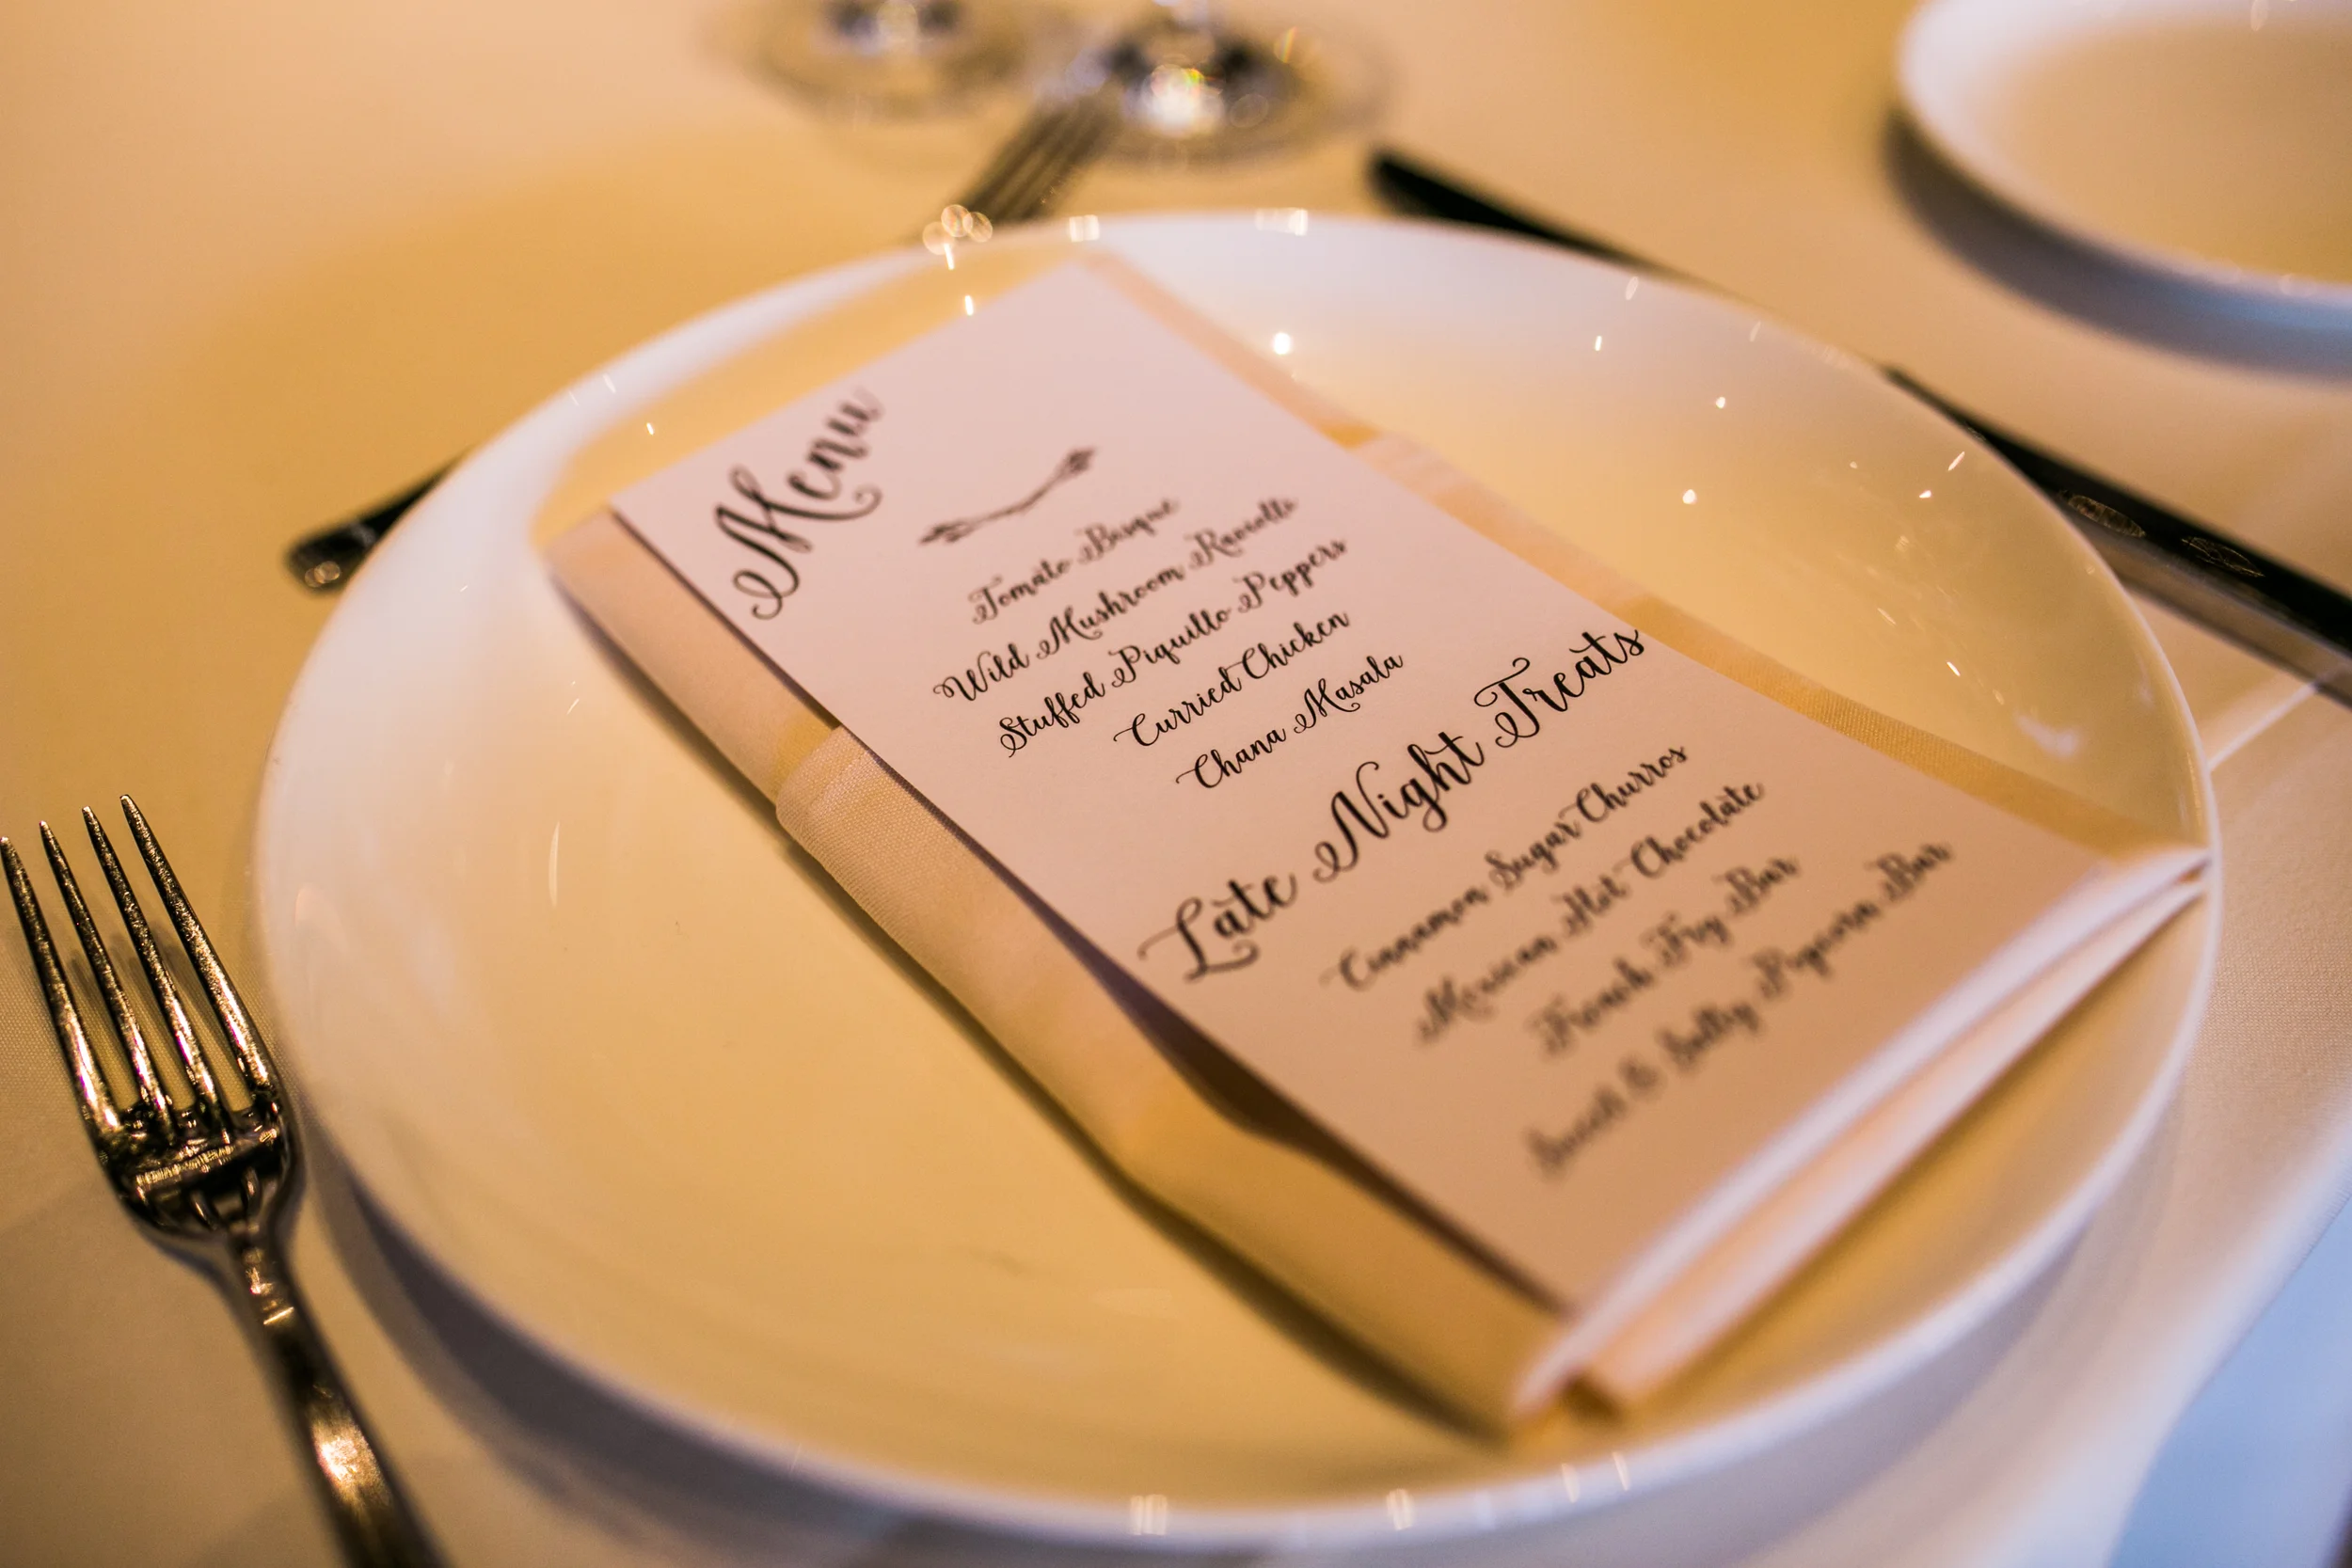 Menu
Tomato Bisque
Wild Mushroom Raviolli
Stuffed Piquillo Peppers
Curried Chicken
Chana Masala
Late Night Treats
Cinnamon Sugar Churros
Mexican Hot Chocolate
French Fry Bar
Sweet & Salty Popcorn Bar